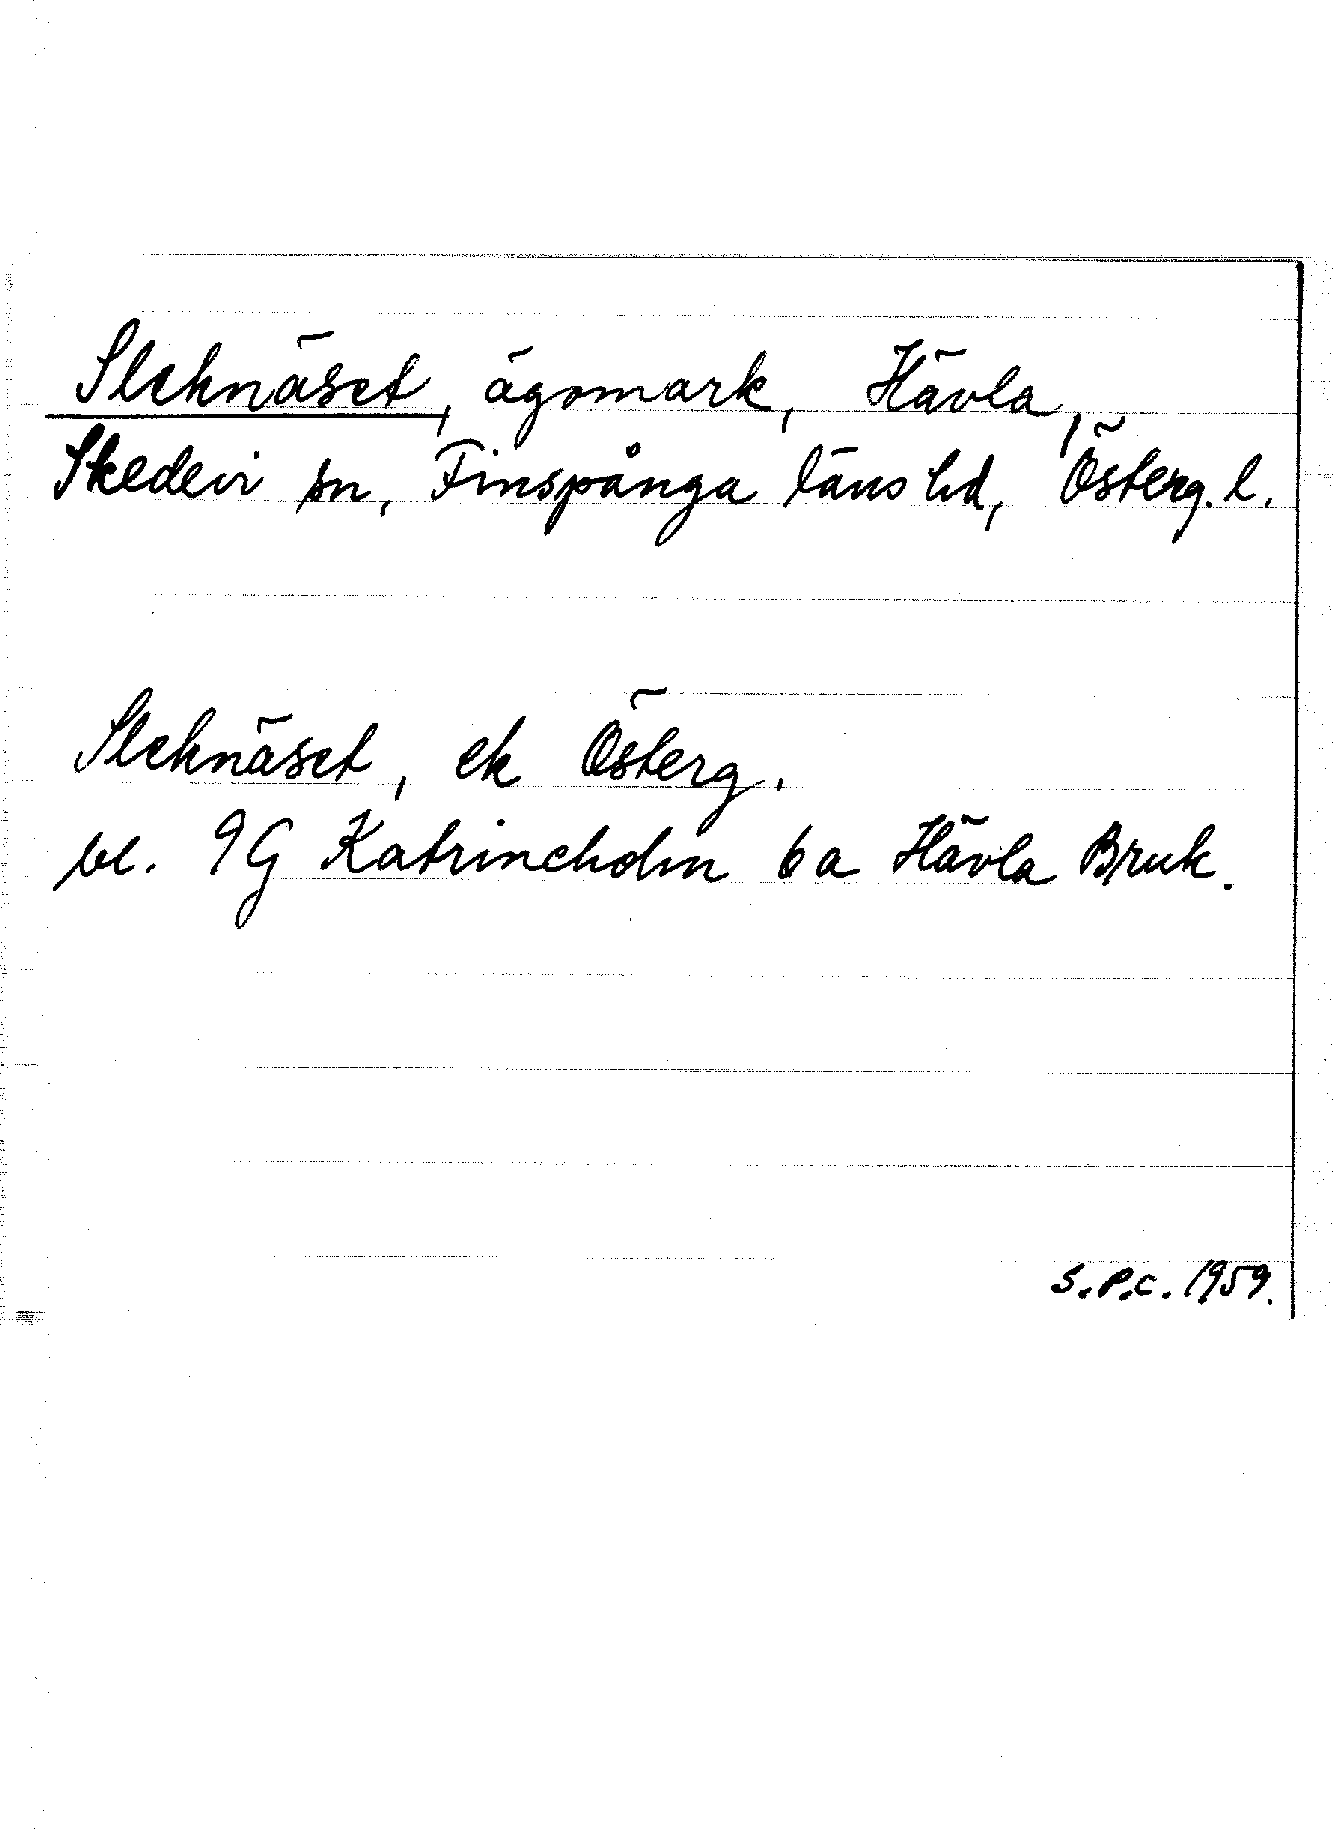 Sleknäset, ägomark, Hävla,
Skedevi sn, Finspånga läns hd, Österg. l.
Sleknäset, ek Österg.
bl. 9G Katrineholm 6a Hävla Bruk.
S.P.C. 1959.